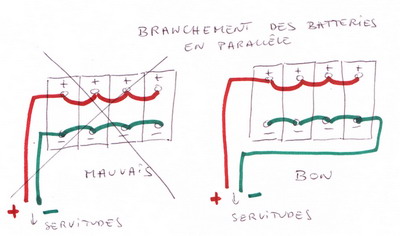 BRANCHEMENT DES BATTERIES
EN PARALLÈLE
+ + + +
- - - -
MAUVAIS
+ -
SERVITUDES
+ + + +
- - - -
BON
+ -
SERVITUDES